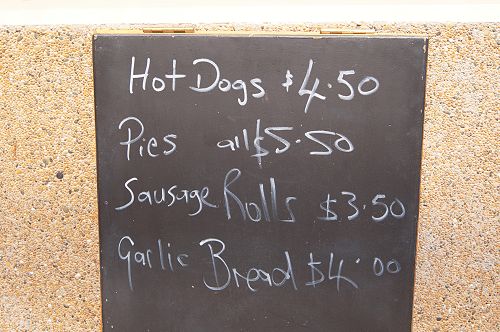 Hot Dogs $4.50
Pies all $5.50
Sausage Rolls $3.50
Garlic Bread $4.00